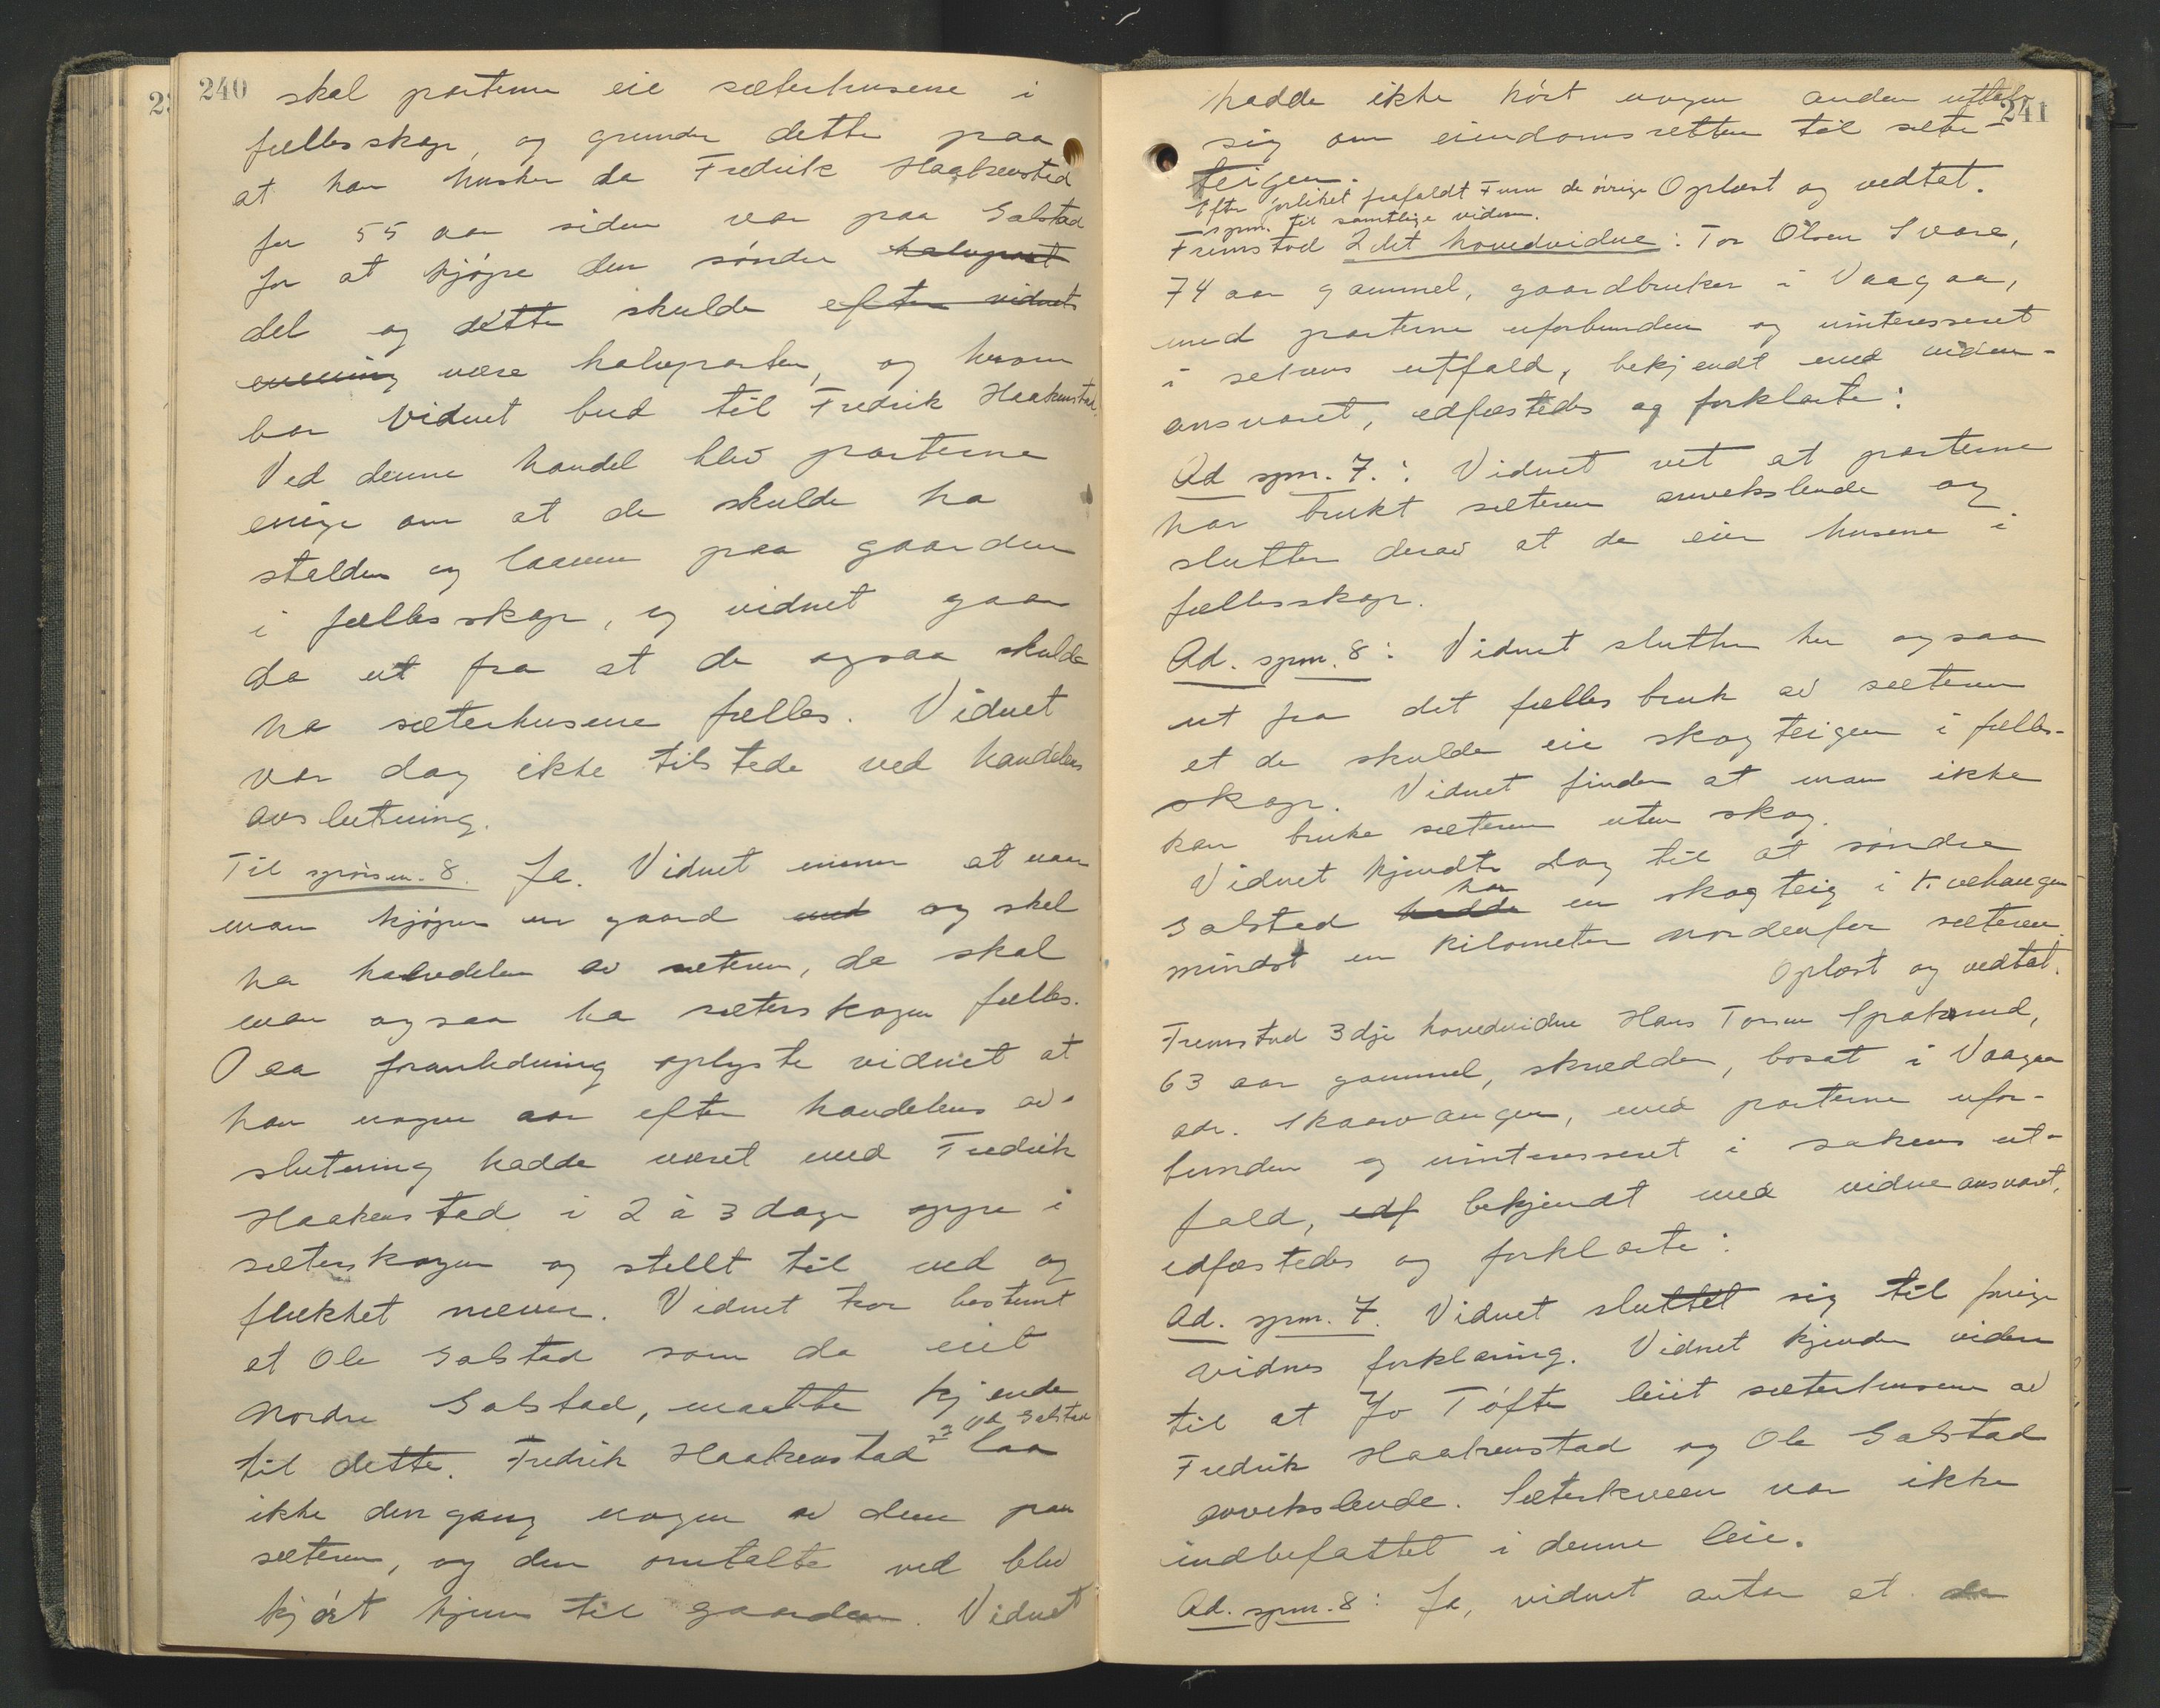 240
skal parterne eie sæterhusene i
fællesskap, og grunder dette paa
at han husker da Fredrik Haakenstad
for 55 aar siden var paa Galstad
for at kjøpe den søndre halvpart
del og dette skulde efter vidnets
mening være halvparten, og hvorom
bar vidnet bud til Fredrik Haakenstad.
Ved denne handel blev parterne
enige om at de skulde ha
stalden og laaven paa gaarden
i fællesskap, og vidnet gaar
da ut fra at de ogsaa skulde
ha sæterhusene fælles. Vidnet
var dog ikke tilstede ved handelens
avslutning.
Til spørsm. 8. Ja. Vidnet mener at naar
man kjøper en gaard med og skal
ha halvdelen av sæteren, da skal
man ogsaa ha sæterskogen fælles.
Paa foranledning oplyste vidnet at
han nogen aar efter handelens av-
slutning hadde været med Fredrik
Haakenstad i 2 à 3 dage oppe i
sæterskogen og stellt til ved og
flekket næver. Vidnet tror bestemt
at Ole Galstad som da eiet
nordre Galstad, maatte kjende
til dette. Fredrik Haakenstad og Ole Galstad laa
ikke den gang nogen av dem paa
sæteren, og den omtalte ved blev
kjørt hjem til gaarden. Vidnet
241
hadde ikke hørt nogen anden uttale
sig om eiendomsretten til sæter-
teigen.
Efter forliket frafaldt Furu de øvrige Oplæst og vedtat.
spm. til samtlige vidner.
Fremstod 2det hovedvidne: Tor Olsen Svare,
74 aar gammel, gaardbruker i Vaagaa,
med parterne uforbunden og uinteresseret
i sakens utfald, bekjendt med vidne-
ansvaret, edfæstedes og forklarte:
Ad spm. 7.: Vidnet vet at parterne
har brukt sæteren avvekslende og
slutter derav at de eier husene i
fællesskap.
Ad. spm. 8: Vidnet slutter her ogsaa
ut fra det fælles bruk av sæteren
at de skulde eie skogteigen i fælles-
skap. Vidnet finder at man ikke
kan bruke sæteren uten skog.
Vidnet kjendte dog til at søndre
Galstad hadde har en skogteig i Kvehaugen
mindst en kilometer nordenfor sæteren.
Oplæst og vedtat.
Fremstod 3dje hovedvidne Hans Torsen Spaksrud,
63 aar gammel, skrædder, bosat i Vaagaa
adr. Skaarvangen, med parterne ufor-
bunden og uinteresseret i sakens ut-
fald, edf bekjendt med vidneansvaret,
edfæstedes og forklarte:
Ad. spm. 7. Vidnet sluttet sig til forrige
vidnes forklaring. Vidnet kjender videre
til at Jo Tofte leiet sæterhusene av
Fredrik Haakenstad og Ole Galstad
avvekslende. Sæterkveen var ikke
indbefattet i denne leie.
Ad. spm. 8: Ja, vidnet antar at da